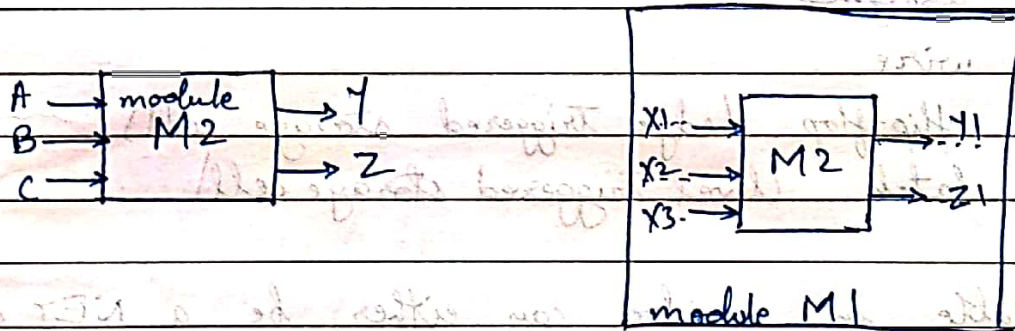 A
B
C
module
M2
Y
Z
X1
X2
X3
M2
Y1
Z1
module M1